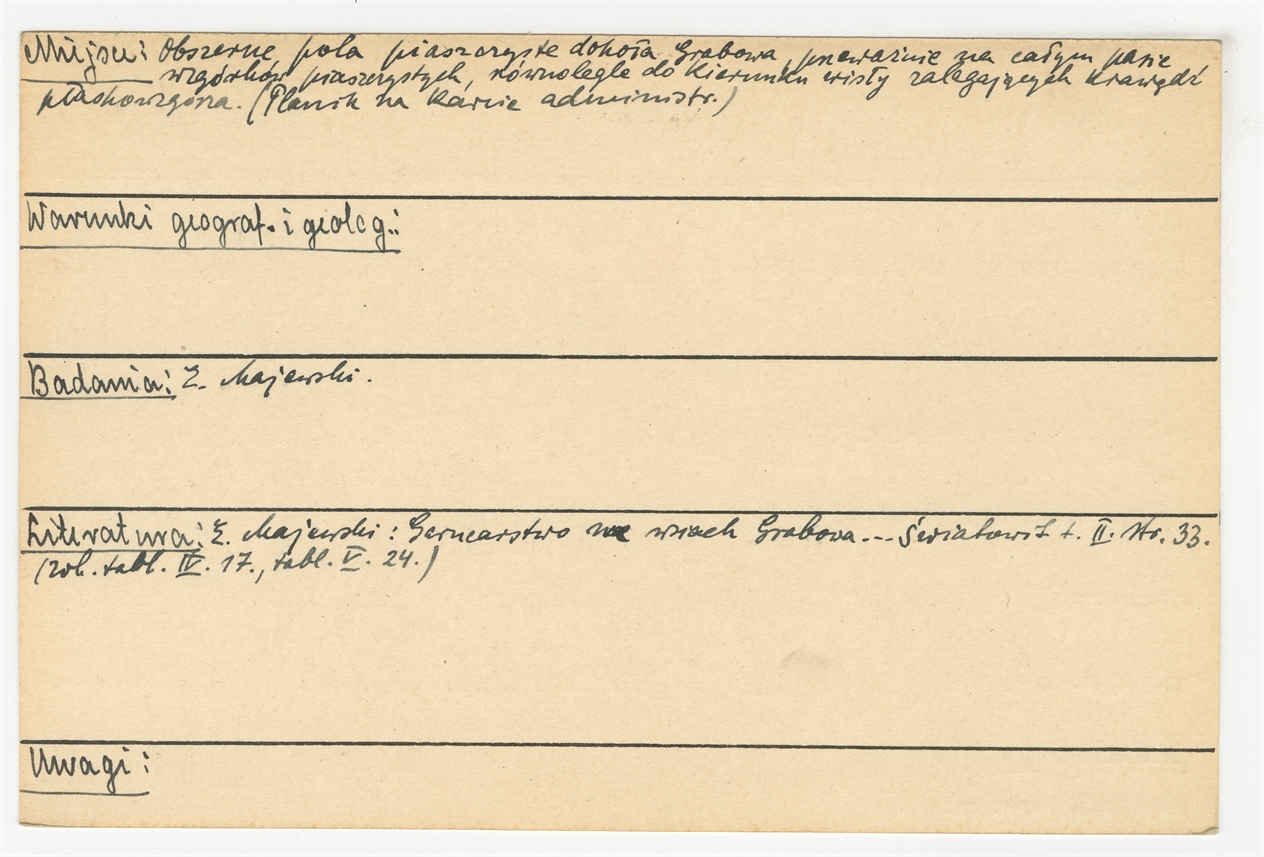 Miejsce: Obszerne pola piaszczyste dokoła Grabowa, przeważnie na całym pasie
wzgórków piaszczystych, równolegle do kierunku Wisły zalegających krawędź
płaskowzgórza. (Planik na karcie administr.)
Warunki geograf. i geolog.:
Badania: E. Majewski.
Literatura: E. Majewski: Garncarstwo we wsiach Grabowa... Światowit t. II. str. 33.
(rob. tabl. IV. 17., tabl. V. 24.)
Uwagi: